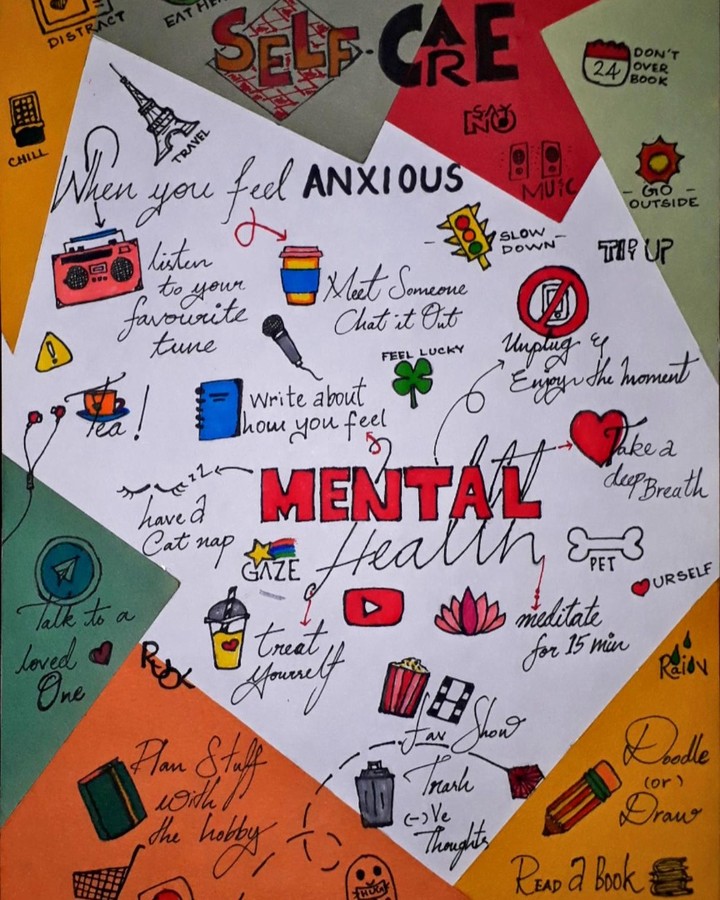 DISTRACT
EAT
SELF-CARE
24
DON'T
OVER
BOOK
CHILL
TRAVEL
SAY
NO
MUIC
GO
OUTSIDE
When you feel ANXIOUS
SLOW
DOWN
UP
listen
to your
favourite
tune
Meet Someone
Chat it Out
FEEL LUCKY
Unplug &
Enjoy the moment
Tea!
Write about
how you feel
Take a
deep Breath
MENTAL
Health
zzz
have a
Cat nap
GAZE
PET
URSELF
Talk to a
loved
One
treat
yourself
meditate
for 15 min
RaiN
Fav Show
Trash
(-)Ve
Thoughts
Plan Stuff
with
the hobby
Doodle
(or)
Draw
READ a Book
HUG